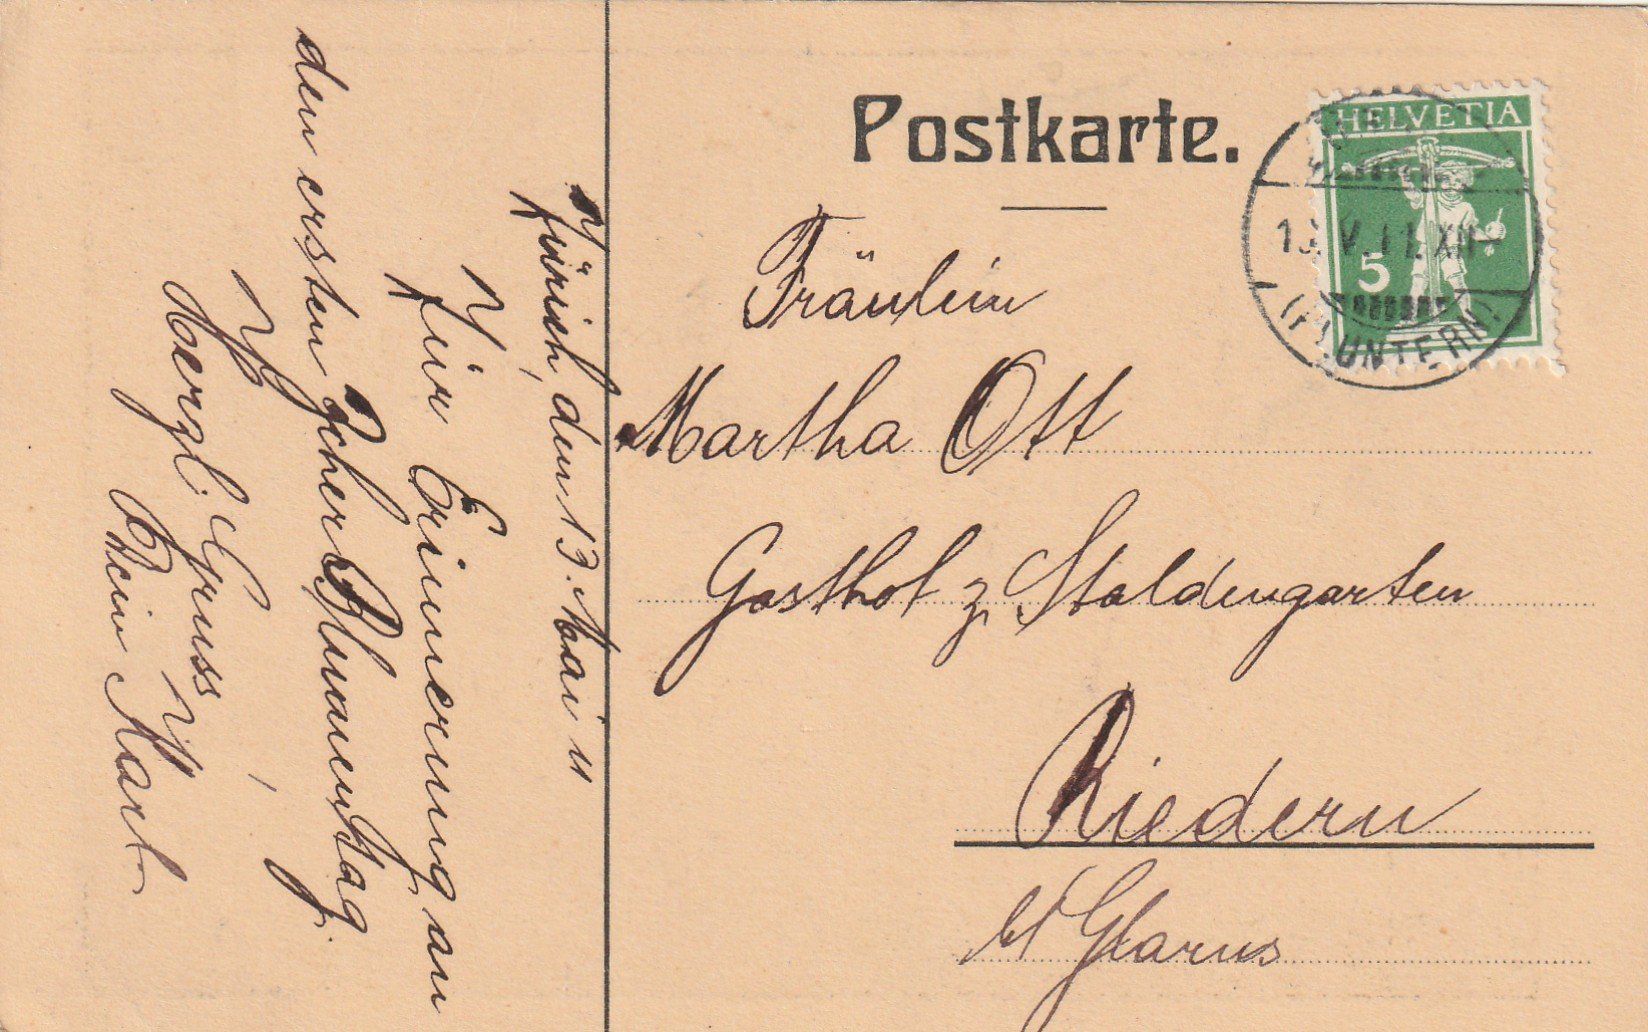 Zürich, den 13. Mai 11
Zur Erinnerung an
den ersten Zcher Blumentag.
Hergl. Gruss
Dein Karl
Postkarte.
HELVETIA
5
13. V. 11. XII
(FLUNTERN)
Fräulein
Martha Ott
Gasthof z. Staldengarten
Riedern
bt Glarus